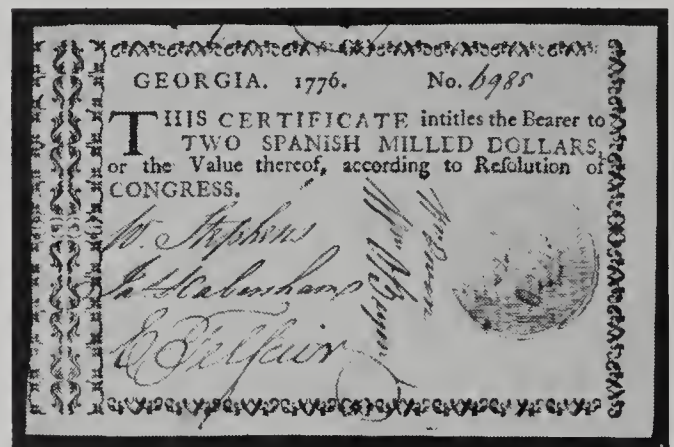 GEORGIA. 1776. No. 6985
THIS CERTIFICATE intitles the Bearer to
TWO SPANISH MILLED DOLLARS,
or the Value thereof, according to Reſolution of
CONGRESS.
W. Stephens
Jas Habersham
E Telfair